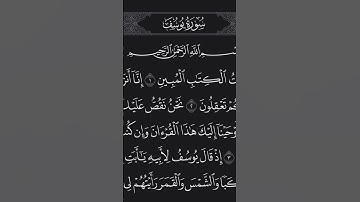 سُورَةُ يُوسُفَ
ـسْمِ ٱللَّهِ ٱلرَّحْمَٰنِ ٱلرَّحِيمِ
تُ ٱلْكِتَٰبِ ٱلْمُبِينِ ١ إِنَّآ أَنزَ
كُمْ تَعْقِلُونَ ٢ نَحْنُ نَقُصُّ عَلَيْكَ
وْحَيْنَآ إِلَيْكَ هَٰذَا ٱلْقُرْءَانَ وَإِن كُنتَ
٣ إِذْ قَالَ يُوسُفُ لِأَبِيهِ يَٰٓأَبَتِ
كَبًا وَٱلشَّمْسَ وَٱلْقَمَرَ رَأَيْتُهُمْ لِى